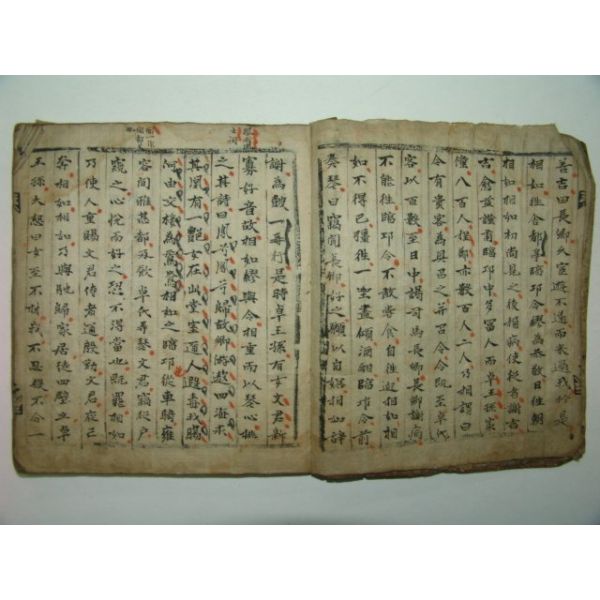 善吉曰長卿久宦遊不遂而來過我於是
相如往舍都亭臨邛令繆為恭敬日往朝
相如相如初尚見之後稱病使從者謝吉
吉愈益謹肅臨邛中多富人而卓王孫家
僮八百人程鄭亦數百人二人乃相謂曰
令有貴客為具召之并召令令既至卓氏
客以百數至日中謁司馬長卿長卿謝病
不能往臨邛令不敢嘗食自往迎相如相
如不得已彊往一坐盡傾酒酣臨邛令前
奏琴曰竊聞長卿好之願以自娛相如辞
謝為鼓一再行是時卓王孫有女文君新
寡好音故相如繆與令相重而以琴心挑
之其詩曰鳳兮鳳兮歸故鄉遊遨四海求
其凰有一艶女在此堂室邇人遐毒我腸
何由交接為鴛鴦相如之臨邛從車騎雍
容閒雅甚都及飲卓氏弄琴文君竊從戶
窺之心悅而好之恐不得當也既罷相如
乃使人重賜文君侍者通殷勤文君夜亡
奔相如相如乃與馳歸家居徒四壁立卓
王孫大怒曰女至不材我不忍殺不分一